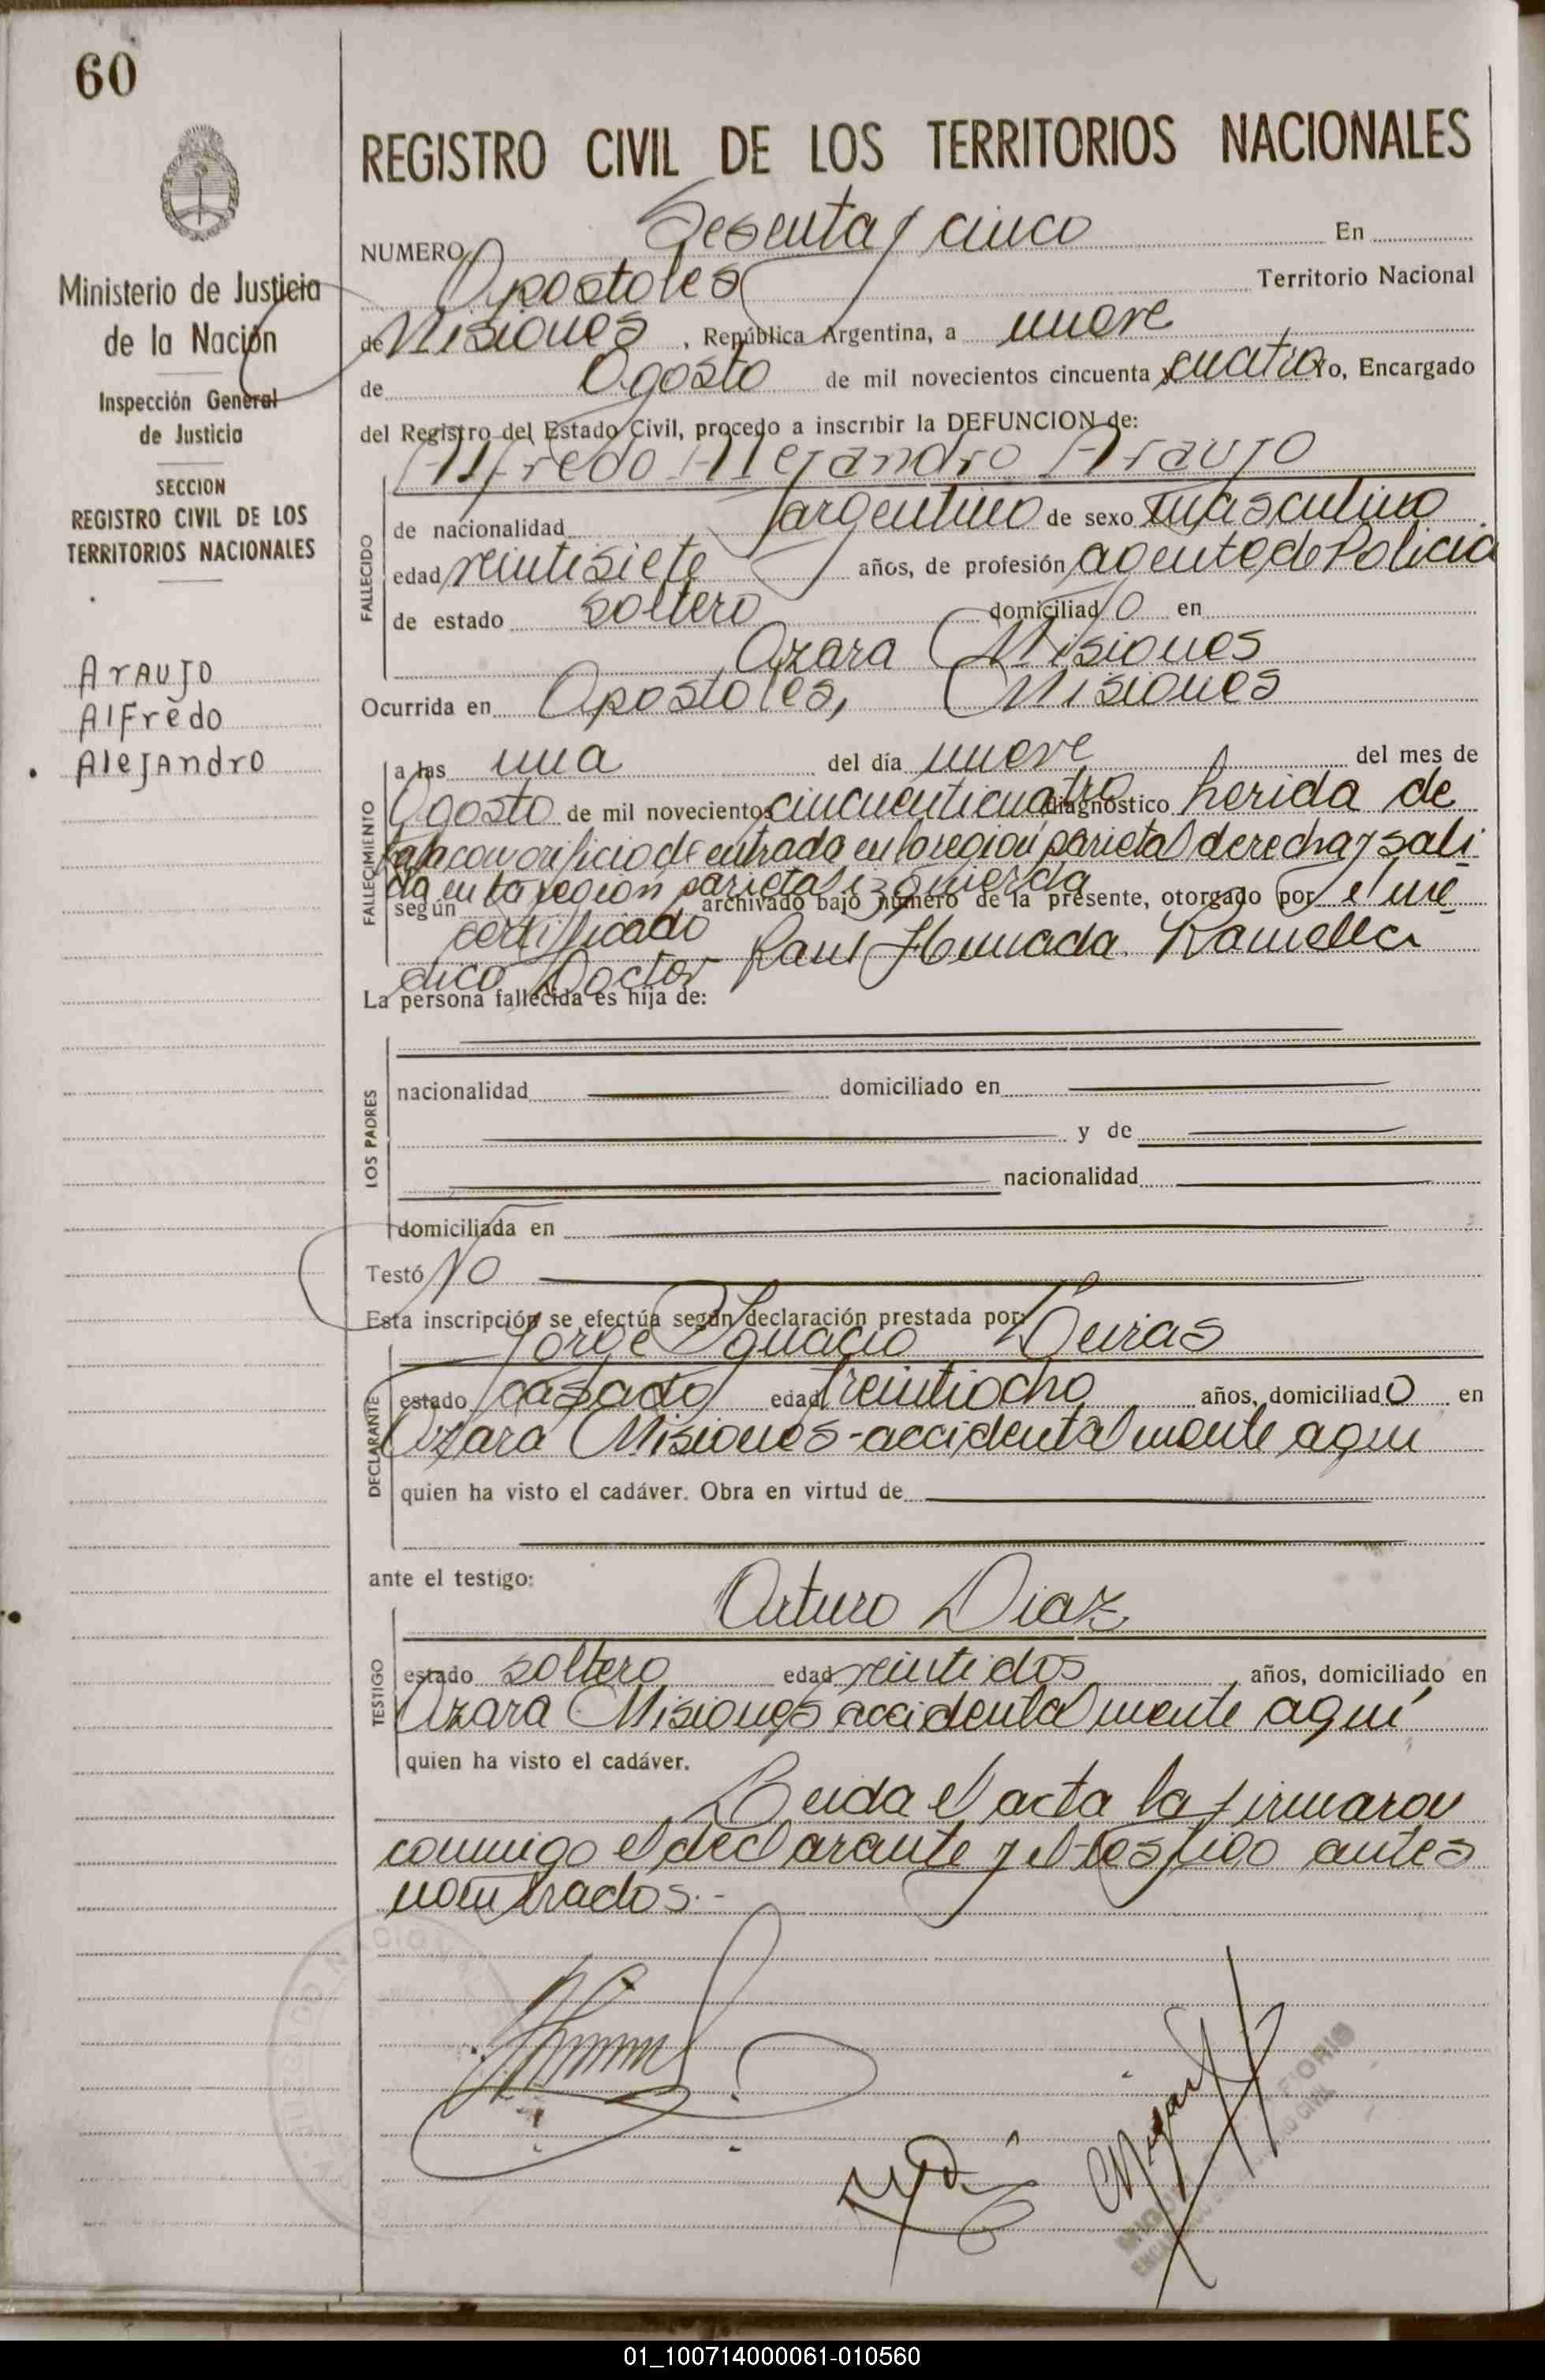 60
Ministerio de Justicia
de la Nación
Inspección General
de Justicia
SECCION
REGISTRO CIVIL DE LOS
TERRITORIOS NACIONALES
Araujo
Alfredo
Alejandro
REGISTRO CIVIL DE LOS TERRITORIOS NACIONALES
NUMERO Sesenta y cinco En
Apostoles Territorio Nacional
de Misiones, República Argentina, a nueve
de Agosto de mil novecientos cincuenta y cuatro Yo, Encargado
del Registro del Estado Civil, procedo a inscribir la DEFUNCION de:
Alfredo Alejandro Araujo
FALLECIDO
de nacionalidad argentino de sexo masculino
edad veintisiete años, de profesión agente de Policia
de estado soltero domiciliado en
Azara Misiones
Ocurrida en Apostoles, Misiones
FALLECIMIENTO
a las una del día nueve del mes de
Agosto de mil novecientos cincuenticuatro diagnóstico herida de
bala con orificio de entrada en la region parietal derecha y sali
da en la region parietal izquierda
según certificado archivado bajo número de la presente, otorgado por el mé
dico Doctor Raul Ramella
La persona fallecida es hija de:
LOS PADRES
nacionalidad domiciliado en
y de
nacionalidad
domiciliada en
Testó No
Esta inscripción se efectúa según declaración prestada por:
Jorge Ignacio
DECLARANTE
estado casado edad treintiocho años, domiciliado en
Azara Misiones - accidentalmente aqui
quien ha visto el cadáver. Obra en virtud de
ante el testigo:
Arturo Diaz
TESTIGO
estado soltero edad veintidos años, domiciliado en
Azara Misiones accidentalmente aquí
quien ha visto el cadáver.
Leida el acta la firmaron
conmigo el declarante y el testigo antes
nombrados.-
01_100714000061-010560